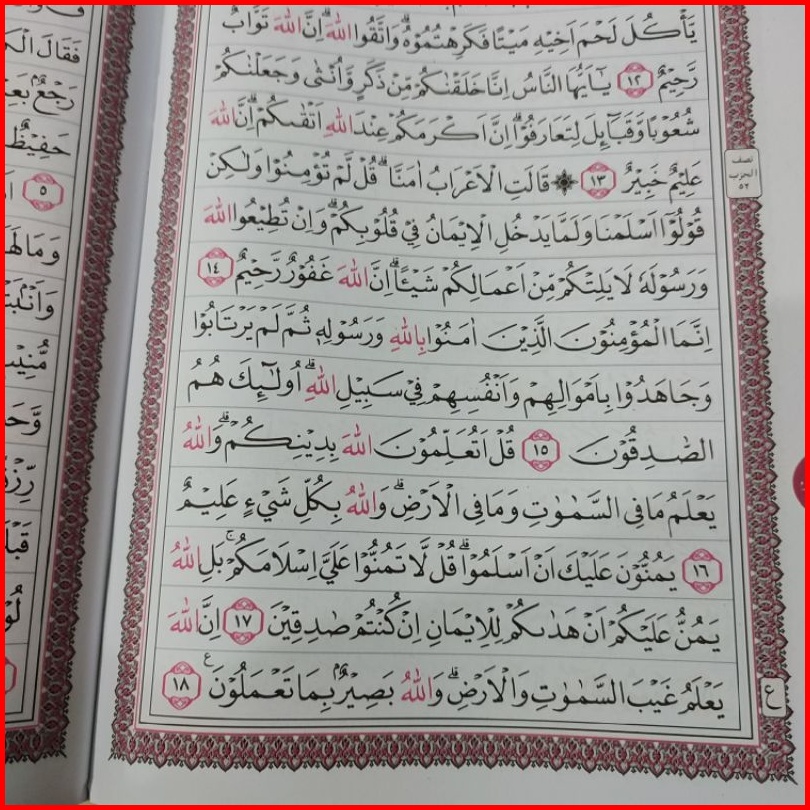 يَأْكُلَ لَحْمَ اَخِيْهِ مَيْتًا فَكَرِهْتُمُوْهُۗ وَاتَّقُوا اللّٰهَ ۗاِنَّ اللّٰهَ تَوَّابٌ
رَّحِيْمٌ ١٢ يٰٓاَيُّهَا النَّاسُ اِنَّا خَلَقْنٰكُمْ مِّنْ ذَكَرٍ وَّاُنْثٰى وَجَعَلْنٰكُمْ
شُعُوْبًا وَّقَبَاۤىِٕلَ لِتَعَارَفُوْاۗ اِنَّ اَكْرَمَكُمْ عِنْدَ اللّٰهِ اَتْقٰىكُمْۗ اِنَّ اللّٰهَ
عَلِيْمٌ خَبِيْرٌ ١٣ ۞ قَالَتِ الْاَعْرَابُ اٰمَنَّاۗ قُلْ لَّمْ تُؤْمِنُوْا وَلٰكِنْ
قُوْلُوْٓا اَسْلَمْنَا وَلَمَّا يَدْخُلِ الْاِيْمَانُ فِيْ قُلُوْبِكُمْۗ وَاِنْ تُطِيْعُوا اللّٰهَ
وَرَسُوْلَهٗ لَا يَلِتْكُمْ مِّنْ اَعْمَالِكُمْ شَيْـًٔاۗ اِنَّ اللّٰهَ غَفُوْرٌ رَّحِيْمٌ ١٤
اِنَّمَا الْمُؤْمِنُوْنَ الَّذِيْنَ اٰمَنُوْا بِاللّٰهِ وَرَسُوْلِهٖ ثُمَّ لَمْ يَرْتَابُوْا
وَجَاهَدُوْا بِاَمْوَالِهِمْ وَاَنْفُسِهِمْ فِيْ سَبِيْلِ اللّٰهِ ۗ اُولٰۤىِٕكَ هُمُ
الصّٰدِقُوْنَ ١٥ قُلْ اَتُعَلِّمُوْنَ اللّٰهَ بِدِيْنِكُمْۗ وَاللّٰهُ
يَعْلَمُ مَا فِى السَّمٰوٰتِ وَمَا فِى الْاَرْضِۗ وَاللّٰهُ بِكُلِّ شَيْءٍ عَلِيْمٌ
١٦ يَمُنُّوْنَ عَلَيْكَ اَنْ اَسْلَمُوْاۗ قُلْ لَّا تَمُنُّوْا عَلَيَّ اِسْلَامَكُمْۚ بَلِ اللّٰهُ
يَمُنُّ عَلَيْكُمْ اَنْ هَدٰىكُمْ لِلْاِيْمَانِ اِنْ كُنْتُمْ صٰدِقِيْنَ ١٧ اِنَّ اللّٰهَ
يَعْلَمُ غَيْبَ السَّمٰوٰتِ وَالْاَرْضِۗ وَاللّٰهُ بَصِيْرٌۢ بِمَا تَعْمَلُوْنَ ࣖ ١٨
نصف
الحزب
٥٢
ع
فَقَالَ
رَجْعٌۢ
حَفِيْظٌ
٥
وَمَا لَهَا
وَاَنْۢبَتْنَا